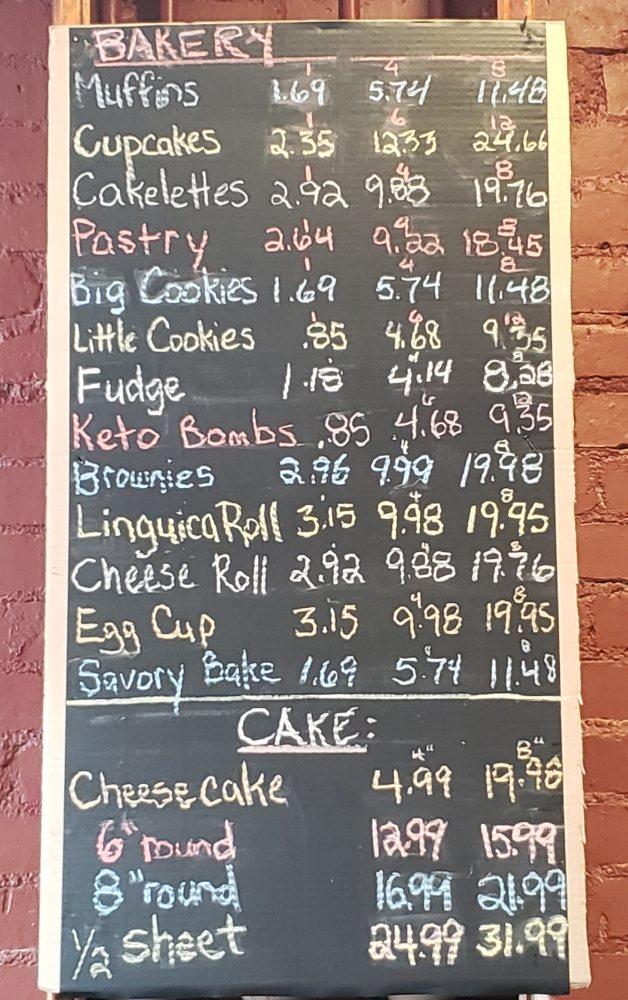 BAKERY
1 4 8
Muffins 1.69 5.74 11.48
1 6 12
Cupcakes 2.35 12.33 24.66
1 4 8
Cakelettes 2.92 9.88 19.76
1 4 8
Pastry 2.64 9.22 18.45
1 4 8
Big Cookies 1.69 5.74 11.48
1 6 12
Little Cookies .85 4.68 9.35
4 8
Fudge 1.18 4.14 8.28
6 12
Keto Bombs .85 4.68 9.35
4 8
Brownies 2.96 9.99 19.98
4 8
Linguica Roll 3.15 9.98 19.95
4 8
Cheese Roll 2.92 9.88 19.76
4 8
Egg Cup 3.15 9.98 19.95
4 8
Savory Bake 1.69 5.74 11.48
CAKE:
4" 8"
Cheesecake 4.99 19.98
6" round 12.99 15.99
8" round 16.99 21.99
1/2 sheet 24.99 31.99